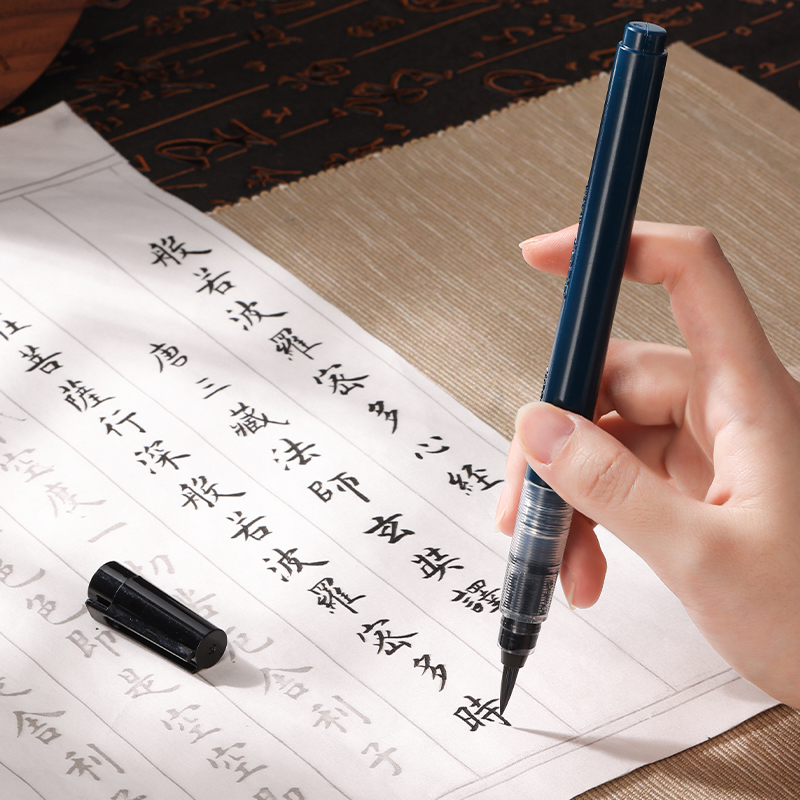 般若波羅密多心経
唐三藏法師玄奘譯
菩薩行深般若波羅密多時
空度一切苦厄舍利子
色色即是空空即
舍利